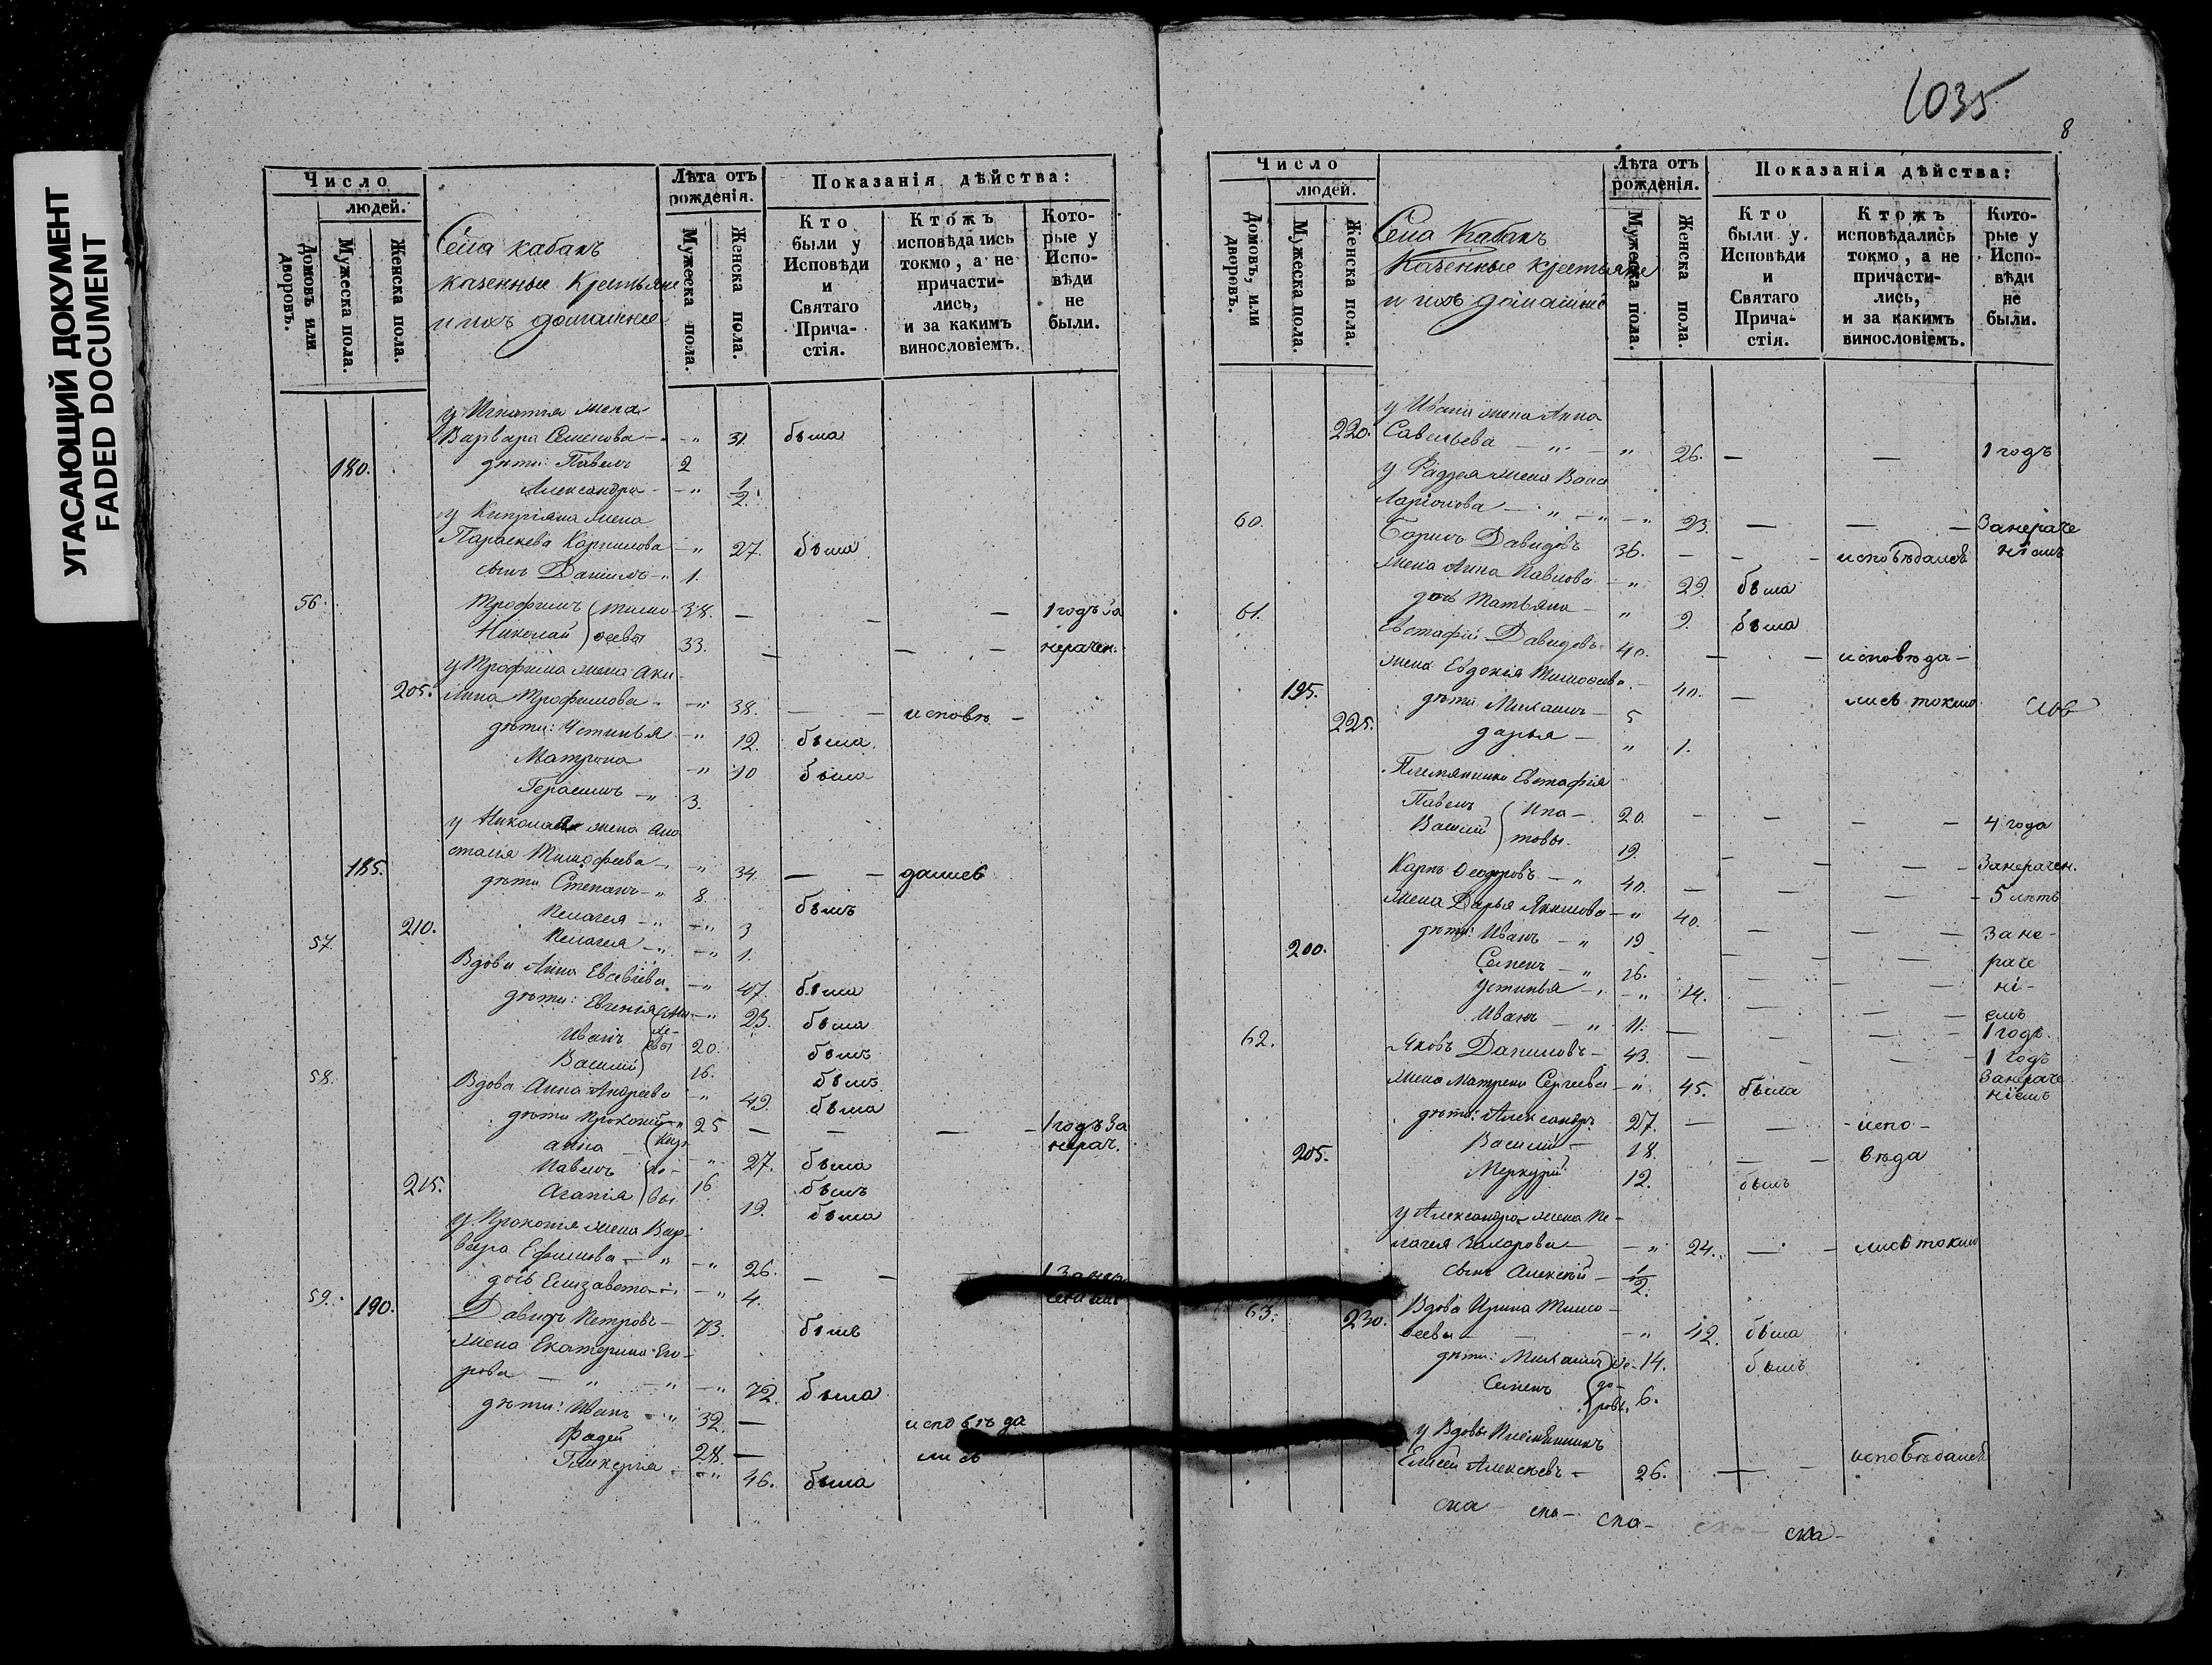 УГАСАЮЩИЙ ДОКУМЕНТ
FADED DOCUMENT
Число
людей.
Домовъ или дворовъ.
Мужеска пола.
Женска пола.
Села кабакъ
казенные Крестьяне
и ихъ домашнiе
Лѣта отъ рожденія.
Мужеска пола.
Женска пола.
Показанія дѣйства:
Кто были у Исповѣди и Святаго Прича-стія.
Ктожъ исповѣдались токмо, а не причасти-лись, и за какимъ винословіемъ.
Кото-рые у Испо-вѣди не были.
у Игнатiя жена
Варвара Семенова – „ 31. была
180. дѣти: Павелъ 2
Александра – „ 1/2.
у Кипрiяна жена
Параскева Карпилова – „ 27. была
сынъ Данiилъ „ 1.
56. Трофимъ Тимо- 38. – – – 1 годъ за
Николай ѳеевы 33. – – – нерачен.
у Трофима жена Аки-
205. лина Трофимова – „ 38. – – исповѣ –
дѣти: Устинья – „ 12. была
Матрона – „ 10 была
Герасимъ – „ 3.
у Николая жена Ана
стасiя Тимофеева – „ 34. – – далисъ
185. дѣти Степанъ – „ 8. былъ
Пелагея – „ – „ 3
210. Пелагея – „ – „ 1.
57. Вдова Анна Евсевiева – „ 47. была
дѣти: Евгенiя – „ 23. была
Иванъ 20. былъ
Василiй 16. былъ
58. Вдова Анна Андреева – „ 49. была
дѣти Прокопiй „ 25 – – – 1 годъ за
анна – „ 27. была нерач.
Павелъ 16 былъ
215. Агапiя 19. была
у Прокопiя жена Вар-
вара Ефимова – „ – „ 26. – –
дочь Елизавета – „ 4.
59. 190. Давидъ Петровъ – 73. былъ
жена Екатерина Его-
рова – „ – „ – „ 72. была
дѣти: Иванъ – „ 32. – исповѣда
Фадей 28. – лисъ
Гликерiя – „ 46. была
1035
8
Число
людей.
Домовъ, или дворовъ.
Мужеска пола.
Женска пола.
Села Кабакъ
Казенные крестьяне
и ихъ домашнiе
Лѣта отъ рожденія.
Мужеска пола.
Женска пола.
Показанія дѣйства:
Кто были у Исповѣди и Святаго Прича-стія.
Ктожъ исповѣдались токмо, а не причасти-лись, и за какимъ винословіемъ.
Кото-рые у Испо-вѣди не были.
у Ивана жена Анна
220. Савельева – „ – „ 26. – – 1 годъ
у Фаддея жена Васа
Ларiонова – „ – „ – „ 23. – – – Занераче
60. Борисъ Давидовъ 36. – – – исповѣдалсѣ нiемъ
жена Анна Павлова – „ 29. была
дочь Татьяна – „ 9. была
61. Евстафiй Давидовъ 40. – – исповѣда –
жена Евдокiя Тимоѳеева – 40. – лисъ токмо
195. дѣти Михаилъ – 5
225. дарья – „ 1.
Племянники Евстафiя
Павелъ Ипа – 20. – – – – 4 года
Василiй товы. 19. – – – – Занерачен.
Карпъ Ѳеодоровъ – „ 40. – – – – 5 лѣтъ
жена Дарья Якимова – „ 40. – – – Зане-
200. дѣти: Иванъ – „ 19 – – – раче
Семенъ – „ 16. – – – нi-
Устинья – „ – „ 14. – – – емъ
Иванъ – „ 11. – – – 1 годъ.
62. Яковъ Даниловъ – 43. – – – 1 годъ
жена Матрена Сергеева – „ 45. была Занераче нiемъ
дѣти: Александръ 27. – – – испо –
205. Василiй – 18. – – вѣда
Меркурiй 12. былъ
у Александра жена Пе-
лагея Захарова – – „ 24. – – лисѣ токмо
сынъ Алексѣй – 1/2.
63. 230. Вдова Ирина Тимо-
ѳеева – – „ 42. была
дѣти: Михаилъ Ѳе- 14. былъ
Семенъ до-ровы. 6.
у Вдовы Племянникъ
Елисей Алексѣевъ – 26. – – исповѣдалсѣ